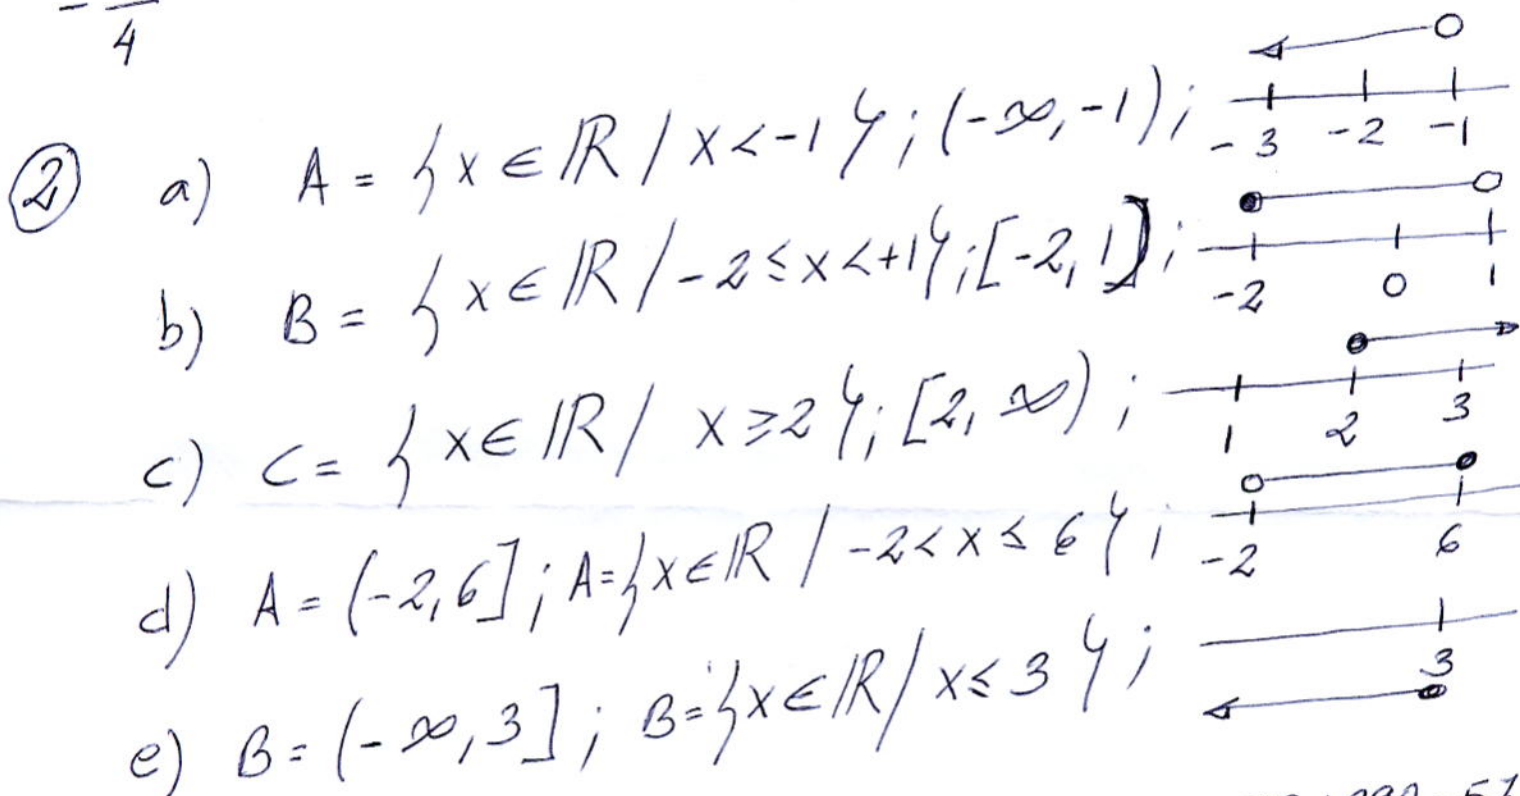 - —
4
② a) A = {x ∈ ℝ / x < -1}; (-∞, -1); -3 -2 -1
b) B = {x ∈ ℝ / -2 ≤ x < +1}; [-2, 1); -2 0 1
c) C = {x ∈ ℝ / x ≥ 2}; [2, ∞); 1 2 3
d) A = (-2, 6]; A = {x ∈ ℝ / -2 < x ≤ 6}; -2 6
e) B = (-∞, 3]; B = {x ∈ ℝ / x ≤ 3}; 3